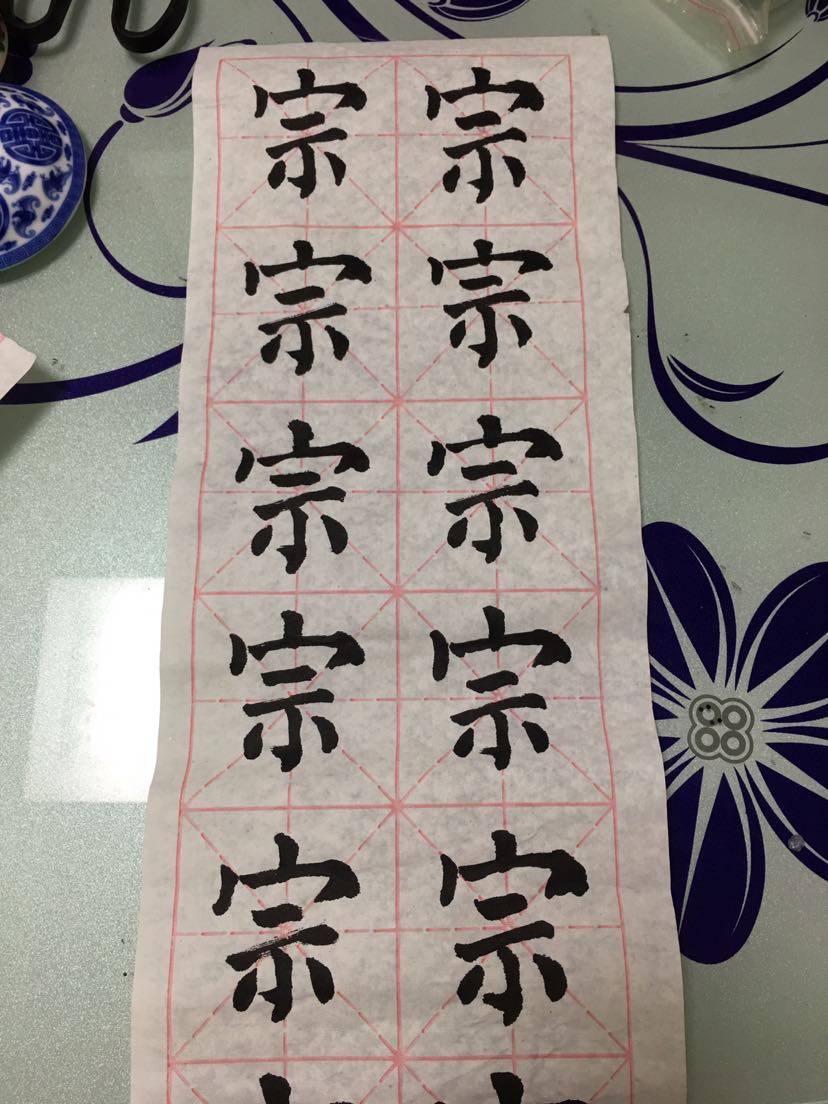 宗 宗
宗 宗
宗 宗
宗 宗
宗 宗